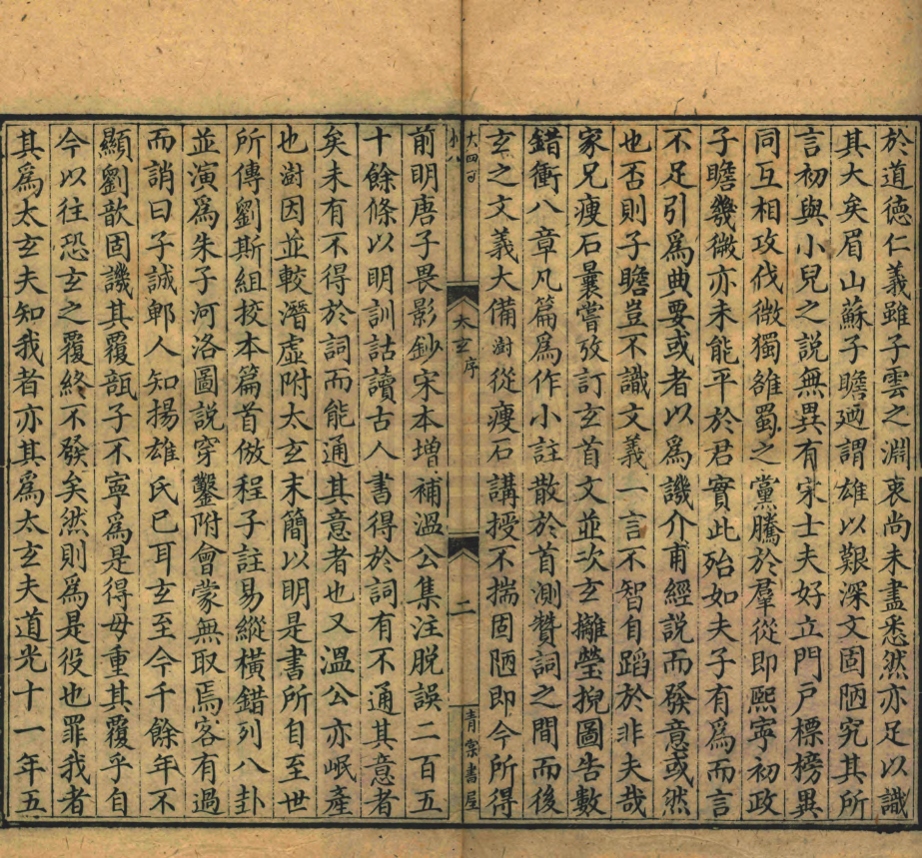 於道德仁義雖子雲之淵衷尚未盡悉然亦足以識
其大矣眉山蘇子瞻廼謂雄以艱深文固陋究其所
言初與小兒之說無異有宋士夫好立門戶標榜異
同互相攻伐微獨雒蜀之黨騰於羣從即熙寧初政
子瞻幾微亦未能平於君實此殆如夫子有爲而言
不足引爲典要或者以爲譏介甫經說而發意或然
也否則子瞻豈不識文義一言不智自蹈於非夫哉
家兄瘦石曩嘗攷訂玄首文並次玄攡瑩掜圖告數
錯衝八章凡篇爲作小註散於首測贊詞之間而後
玄之文義大備澍從瘦石講授不揣固陋即今所得
太玄序
二
青棠書屋
前明唐子畏影鈔宋本增補溫公集注脫誤二百五
十餘條以明訓詁讀古人書得於詞有不通其意者
矣未有不得於詞而能通其意者也又溫公亦岷產
也澍因並較潛虛附太玄末簡以明是書所自至世
所傳劉斯組校本篇首倣程子註易縱橫錯列八卦
並演爲朱子河洛圖說穿鑿附會蒙無取焉客有過
而誚曰子誠郫人知揚雄氏已耳玄至今千餘年不
顯劉歆固譏其覆瓿子不寧爲是得毋重其覆乎自
今以往恐玄之覆終不發矣然則爲是役也罪我者
其爲太玄夫知我者亦其爲太玄夫道光十一年五